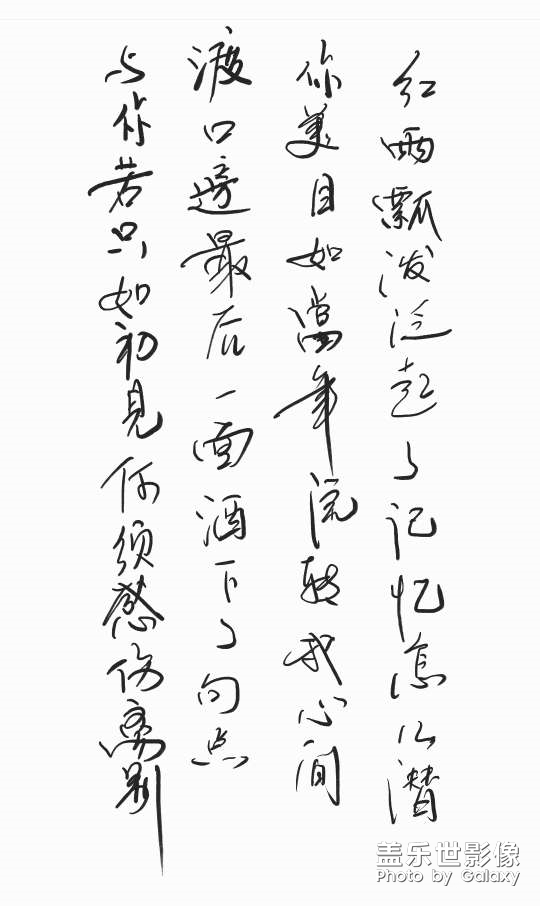 红雨瓢泼泛起了记忆怎么潜
你美目如當年流转我心间
渡口邊最后一面洒下了句点
与你若只如初見何须感伤离别
盖乐世影像
Photo by Galaxy